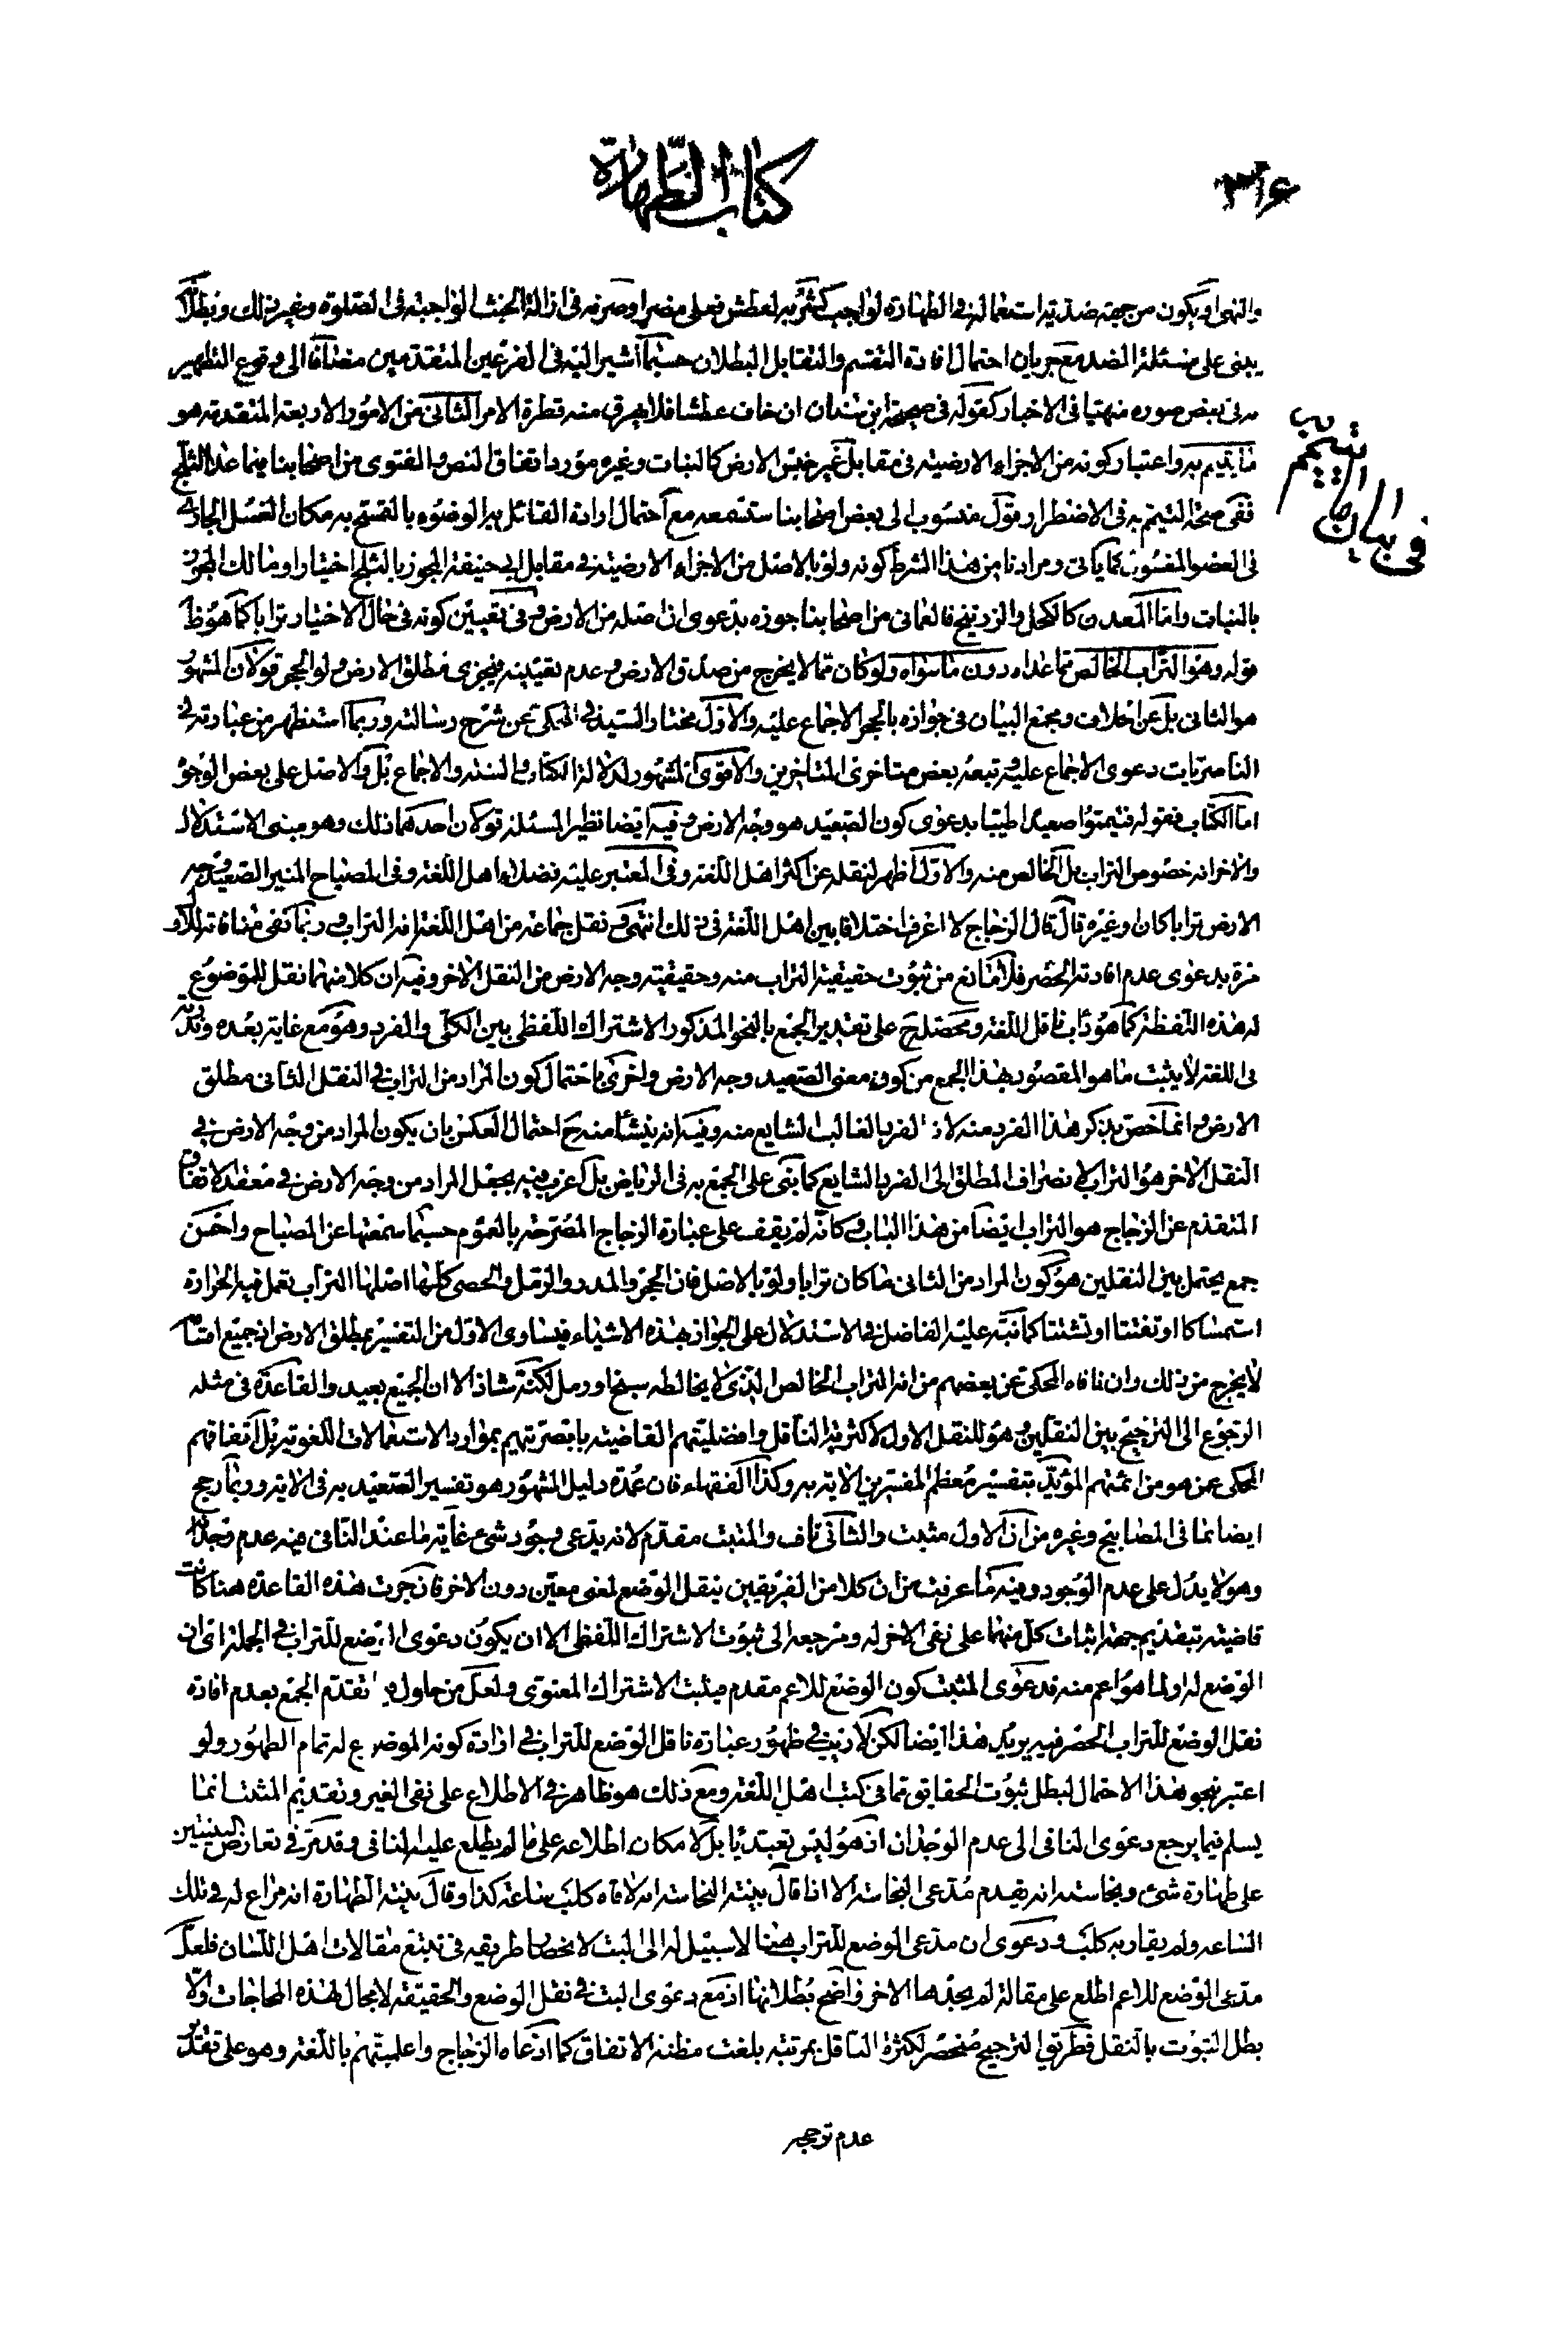 ٣١۶
كتاب الطهارة
في بيان ما يتيمم به
والنهى او يكون من جهة ضدية استعماله في الطهارة لواجب كشربه لعطش فعلى مضر او صرفه في ازالة الخبث الواجبة في الصلوة وغير ذلك وبطلانه
يبنى على مسئلة الضد مع جريان احتمال افادة التقسيم والتقابل البطلان حسبما اشير اليه في الفرعين المتقدمين مضافا الى وقوع التطهير
به في بعض صوره منهيا في الاخبار كقوله في صحيحة ابن سندان ان خاف عطشا فلا يهرق منه قطرة الامر الثانى من الامور الاربعة المتقدمة هو
ما يتيمم به واعتبار كونه من الاجزاء الارضية في مقابل غير جنس الارض كالنبات وغيره مورد اتفاق النص والفتوى من اصحابنا فيما عدا الثلج
ففى صحة التيمم به في الاضطرار قول منسوب الى بعض اصحابنا ستسمعه مع احتمال ارادة القائل به الوضوء بالتمسح به مكان الغسل الجارى
في العضو المغسول كما ياتى ومرادنا من هذا الشرط كونه ولو بالاصل من الاجزاء الارضية في مقابل ابي حنيفة المجوز بالثلج اختيارا ومالك المجوز
بالنبات واما المعدن كالكحل والزرنيخ فالعمانى من اصحابنا جوزه بدعوى ان اصله من الارض وفى تعيين كونه في حال الاختيار ترابا كما هو ظ
قوله وهو التراب الخالص مما عداه دون ما سواه ولو كان مما لا يخرج من صدق الارض وعدم تعيينه فيجزى مطلق الارض ولو الحجر قولان المشهور
هو الثانى بل عن الخلاف ومجمع البيان في جوازه بالحجر الاجماع عليه والاول مختار السيد في المحكى عن شرح رسالته وربما استظهر من عبارته في
الناصريات دعوى الاجماع عليه وتبعه بعض متاخرى المتاخرين والاقوى المشهور لدلالة الكتاب والسنة والاجماع بل والاصل على بعض الوجوه
اما الكتاب فقوله فتيمموا صعيدا طيبا بدعوى كون الصعيد هو وجه الارض وفيه ايضا نظير المسئلة قولان احدهما ذلك وهو مبنى الاستدلال
والاخر انه خصوص التراب بل الخالص منه والاول اظهر لنقله عن اكثر اهل اللغة وفى المعتبر عليه فضلاء اهل اللغة وفى المصباح المنير الصعيد وجه
الارض ترابا كان وغيره قال قال الزجاج لا اعرف اختلافا بين اهل اللغة في ذلك انتهى ونقل جماعة من اهل اللغة انه التراب وربما نفى منافاته للاول
مرة بدعوى عدم افادته الحصر فلا مانع من ثبوت حقيقية التراب منه وحقيقية وجه الارض من النقل الاخر وفيه ان كلا منهما نقل للموضوع
له هذه اللفظة كما هو داب ناقل اللغة وتحصل ح على تقدير الجمع بالنحو المذكور الاشتراك اللفظى بين الكلى والفرد وهو مع غاية بعده وندرته
في اللغة لا يثبت ما هو المقصود بهذا الجمع من كون معنى الصعيد وجه الارض واخرى باحتمال كون المراد من التراب في النقل الثانى مطلق
الارض وانما خص بذكر هذا الفرد منه لانه الفرد الغالب الشايع منه وفيه انه ينشأ منه ح احتمال العكس بان يكون المراد من وجه الارض في
النقل الاخر هو التراب لانصراف المطلق الى الفرد الشايع كما بنى على الجمع به في الرياض بل اغرب فيه بجعل المراد من وجه الارض في معقد الاتفاق
المتقدم عن الزجاج هو التراب ايضا من هذا الباب وكانه لم يقف على عبارة الزجاج المصرحة بالعموم حسبما سمعتها عن المصباح واحسن
جمع يحتمل بين النقلين هو كون المراد من الثانى ما كان ترابا ولو بالاصل فان الحجر والمدر والرمل والحصى كلها اصلها التراب تعمل فيه الحرارة
استمساكا او تفتتا او تشتتا كما نبه عليه الفاضل في الاستدلال على الجواز بهذه الاشياء فيساوى الاول من التفسير بمطلق الارض اذ جميع افتتاته
لا يخرج من ذلك وان نافاه المحكى عن بعضهم من انه التراب الخالص الذى لا يخالطه سبخ او رمل لكنه شاذ الا ان الجمع بعيد والقاعدة في مثله
الرجوع الى الترجيح بين النقلين وهو للنقل الاول لاكثرية الناقل وافضليتهم القاضية بابصريتهم بموارد الاستعمالات اللغوية بل اتفاقهم
المحكى عمن هو من ائمتهم المؤيد بتفسير معظم المفسرين الاية به وكذا الفقهاء فان عمدة دليل المشهور هو تفسير الصعيد به في الاية وربما رجح
ايضا بما في المصابيح وغيره من ان الاول مثبت والثانى ناف والمثبت مقدم لانه يدعى وجود شىء غاية ما عند النافى فيه عدم وجدانه
وهو لا يدل على عدم الوجود وفيه ما عرفت من ان كلا من الفريقين ينقل الوضع لمعنى معين دون الاخر فان جرت هذه القاعدة هنا كانت
قاضية بتقديم جهة اثبات كل منهما على نفى الاخر له ومرجعه الى ثبوت الاشتراك اللفظى الا ان يكون دعوى الوضع للتراب في الجملة اى ان
الوضع له او لما هو اعم منه فدعوى المثبت كون الوضع للاعم مقدم فيثبت الاشتراك المعنوى ولعل من حاول فيما تقدم الجمع بعدم افادة
نقل الوضع للتراب الحصر فيه يريد هذا ايضا لكن لا ريب في ظهور عبارة ناقل الوضع للتراب في ارادة كونه الموضوع له تمام الظهور ولو
اعتبر نحو هذا الاحتمال لبطل ثبوت الحقايق بما في كتب اهل اللغة ومع ذلك هو ظاهر في الاطلاع على نفى الغير وتقديم المثبت انما
يسلم فيما يرجع دعوى النافى الى عدم الوجدان اذ هو ليس تعبديا بل لامكان اطلاعه على ما لم يطلع عليه النافى وقد مر في تعارض البينتين
على طهارة شىء ونجاسته انه يقدم مدعى النجاسة الا اذا قال بينة النجاسة انه لاقاه كلب ساعة كذا وقال بينة الطهارة انه مراع له في تلك
الساعة ولم يقاربه كلب ودعوى ان مدعى الوضع للتراب هنا لا سبيل له الى البت لانحصار طريقه في تتبع مقالات اهل اللسان فلعل
مدعى الوضع للاعم اطلع على مقالة لم يجدها الاخر واضح بطلانها اذ مع دعوى البت في نقل الوضع والحقيقة لا مجال لهذه المحاجات والا
بطل الثبوت بالنقل فطريق الترجيح منحصر لكثرة الناقل بمرتبة بلغت مظنة الاتفاق كما ادعاه الزجاج واعلميتهم باللغة وهو على تقدير
عدم ترجيحه